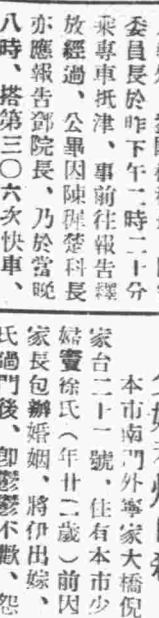 委員長於昨下午二時二十分
乘專車抵津、事前往報告釋
放經過、公畢因陳穉楚科長
亦應報告鄧院長、乃於當晚
八時、搭第三〇六次快車、
本市南門外寧家大橋倪
家台二十一號、住有本市少
婦竇徐氏（年廿二歲）前因
家長包辦婚姻、將伊出嫁、
氏過門後、卽鬱鬱不歡、怨